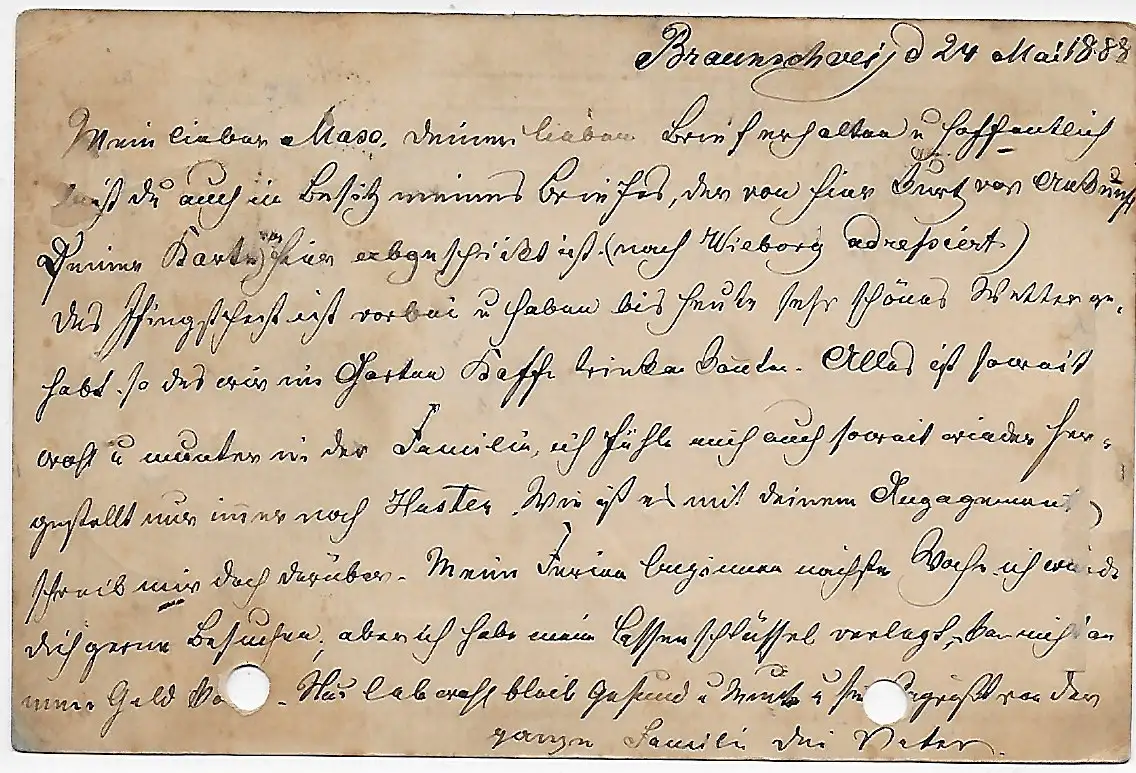 Braunschweig d 24 Mai 1888
Mein lieber Max. Deinen lieben Brief erhalten u hoffentlich
bist du auch in Besitz meines Briefes, der von hier kurz vor Ankunft
Deiner Karte hier abgeschickt ist. (nach Wieborg adressiert.)
das Pfingstfest ist vorbei u haben bis heute sehr schönes Wetter ge-
habt. so das wir im Garten Kaffe trinken konten. Alles ist soweit
wohl u munter in der Familie, ich fühle mich auch soweit wieder her-
gestellt nur immer noch Husten. Wie ist es mit deinem Engagement,
schreib mir doch darüber. Meine Ferien beginnen nächste Woche ich würde
dich gerne Besuchen, aber ich habe mein Cassenschlüssel verlegt, kan nicht an
mein Geld. Nu leb wohl bleib Gesund u u sei Begrüßt von der
ganzen Familie dein Vater.